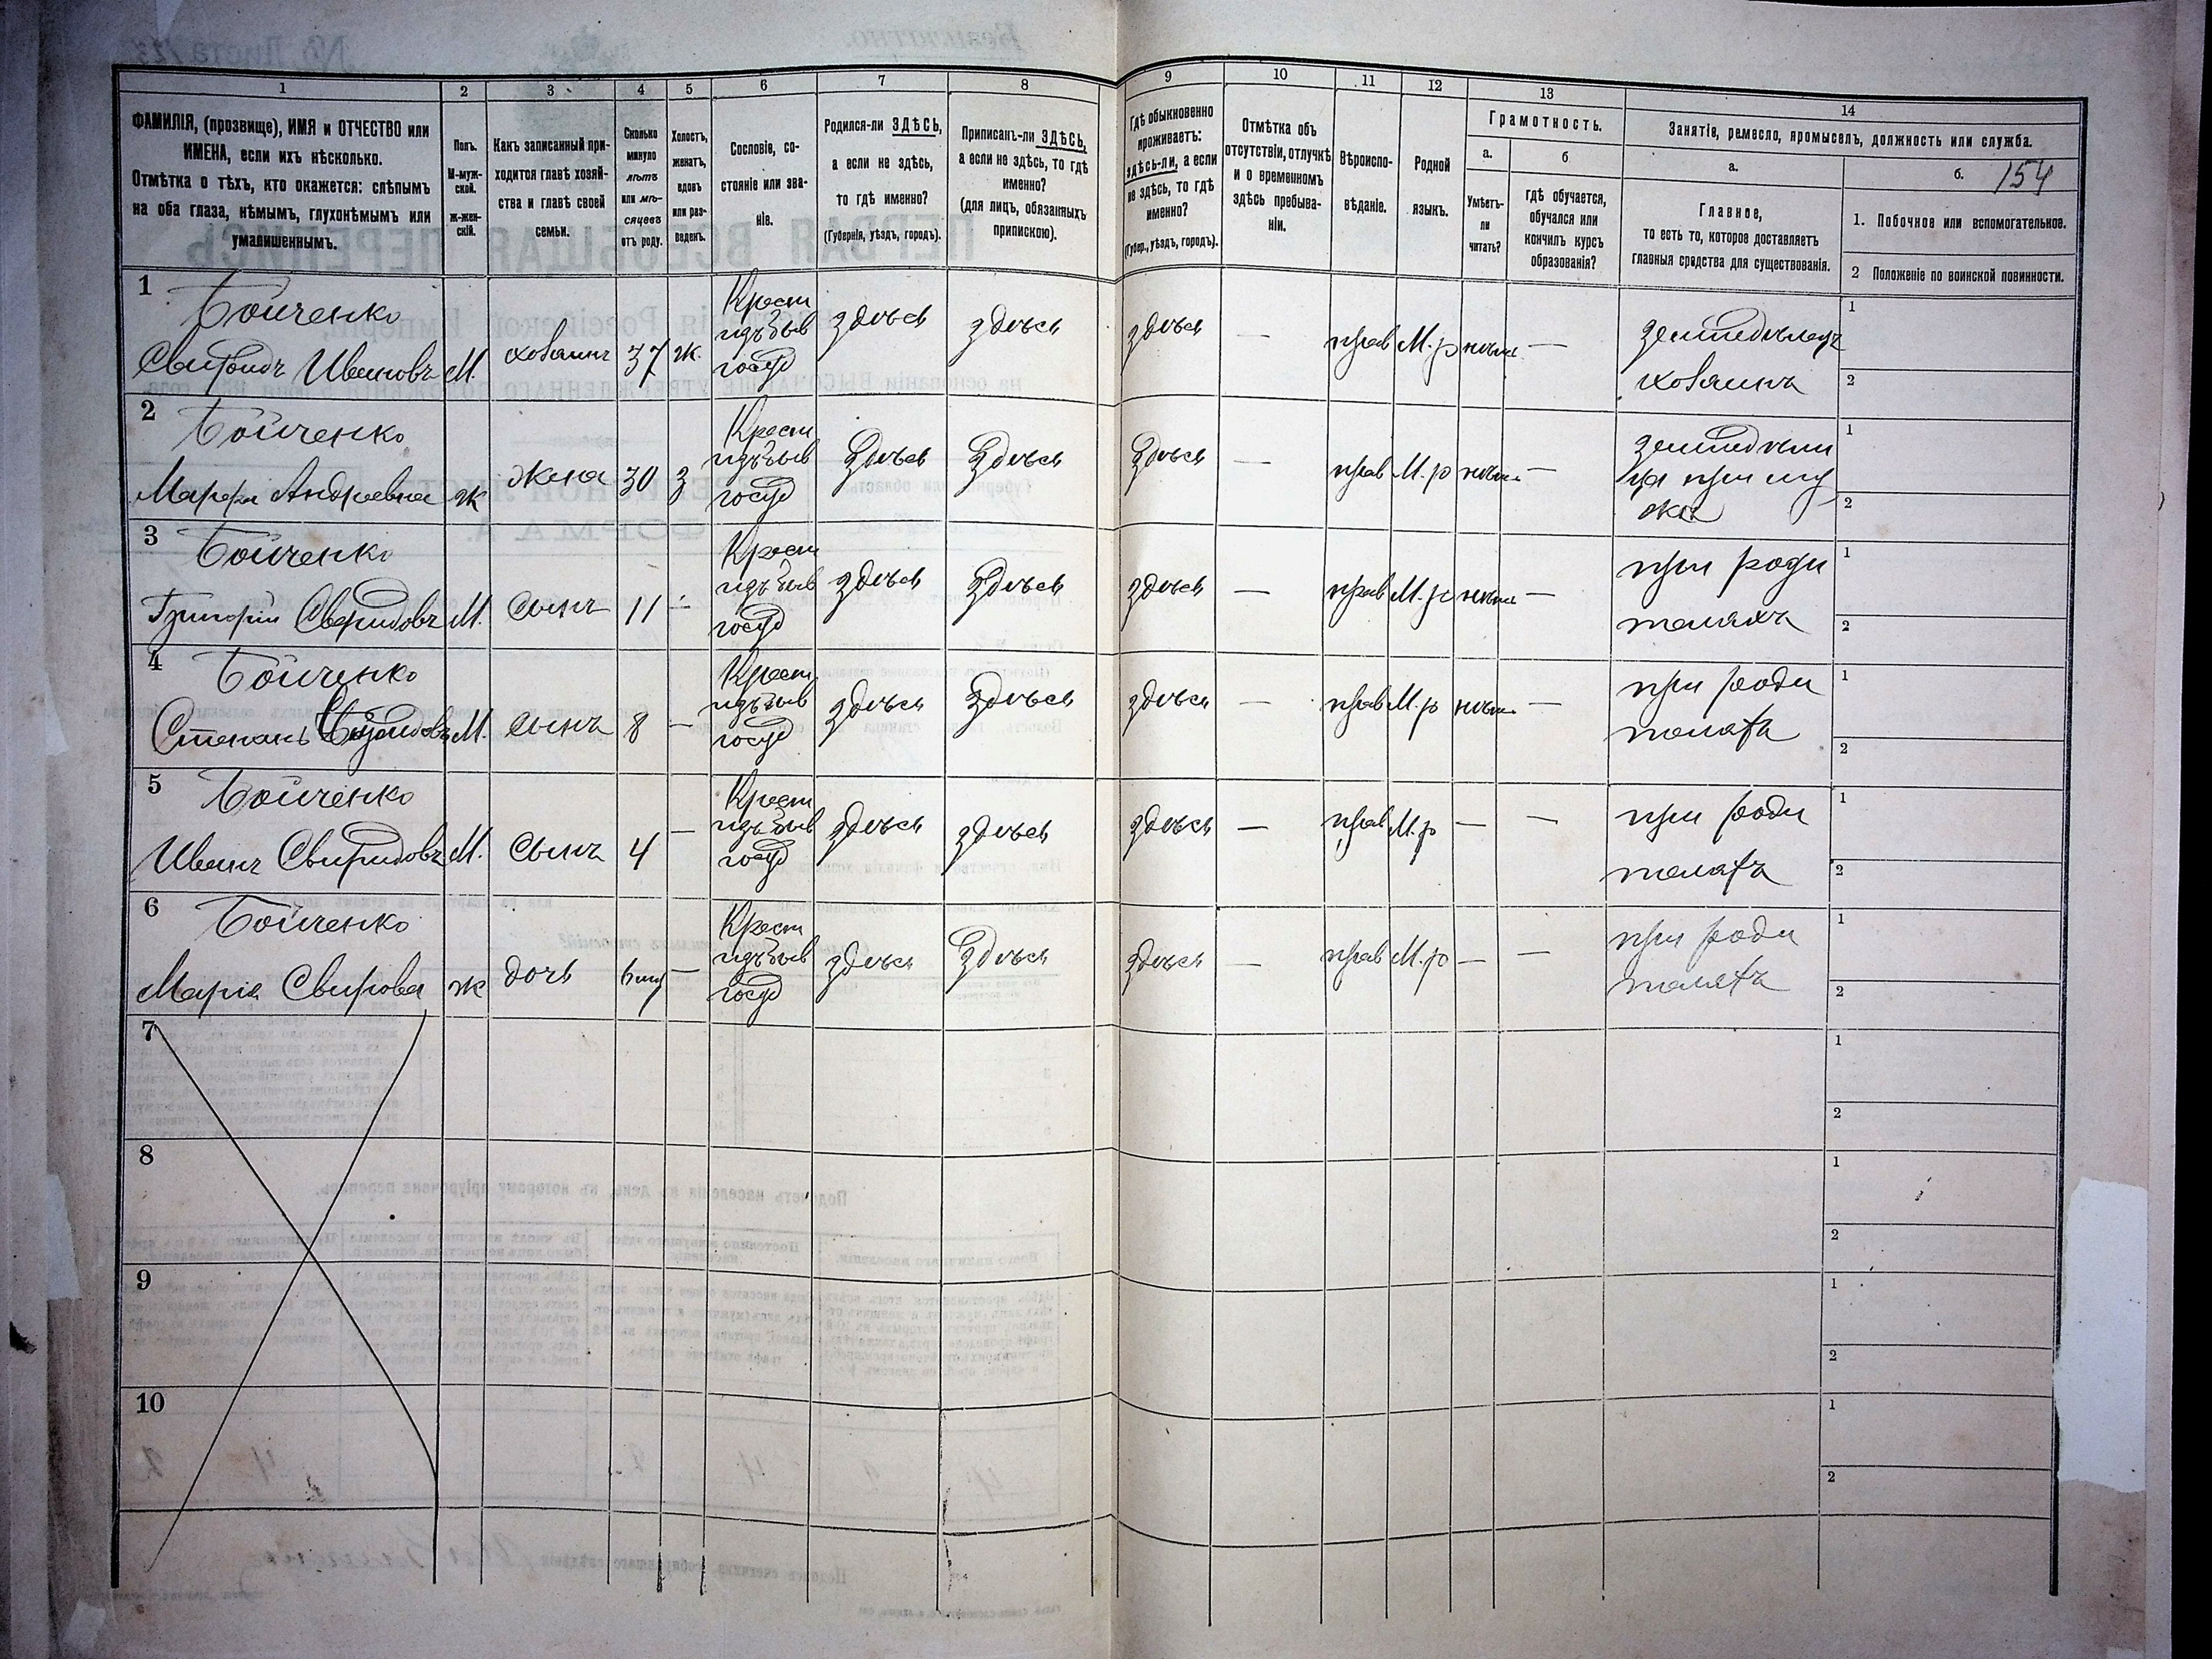 1
2
3
4
5
6
7
8
9
10
11
12
13
14
ФАМИЛІЯ, (прозвище), ИМЯ и ОТЧЕСТВО или
ИМЕНА, если ихъ нѣсколько.
Отмѣтка о тѣхъ, кто окажется: слѣпымъ
на оба глаза, нѣмымъ, глухонѣмымъ или
умалишеннымъ.
Полъ.
М-муж-
ской.
ж-жен-
скій.
Какъ записанный при-
ходится главѣ хозяй-
ства и главѣ своей
семьи.
Сколько
минуло
лѣтъ
или мѣ-
сяцевъ
отъ роду.
Холостъ,
женатъ,
вдовъ
или раз-
веденъ.
Сословіе, со-
стояніе или зва-
ніе.
Родился-ли ЗДѢСЬ,
а если не здѣсь,
то гдѣ именно?
(Губернія, уѣздъ, городъ).
Приписанъ-ли ЗДѢСЬ,
а если не здѣсь, то гдѣ
именно?
(для лицъ, обязанныхъ
припискою).
Гдѣ обыкновенно
проживаетъ:
здѣсь-ли, а если
не здѣсь, то гдѣ
именно?
(Губер., уѣздъ, городъ).
Отмѣтка объ
отсутствіи, отлучкѣ
и о временномъ
здѣсь пребыва-
ніи.
Вѣроиспо-
вѣданіе.
Родной
языкъ.
Грамотность.
а.
Умѣетъ-
ли
читать?
б
гдѣ обучается,
обучался или
кончилъ курсъ
образованія?
Занятіе, ремесло, промыселъ, должность или служба.
а.
Главное,
то есть то, которое доставляетъ
главныя средства для существованія.
б.
154
1. Побочное или вспомогательное.
2 Положеніе по воинской повинности.
1
Бойченко
Свиридъ Ивановъ
М.
хозяинъ
37
ж.
Крест
изъ быв
госуд
здѣсь
здѣсь
здѣсь
—
прав
М. р
нѣтъ
—
земледѣлецъ
хозяинъ
1
2
2
Бойченко
Марфа Андреевна
ж
жена
30
з
Крест
изъ быв
госуд
Здѣсь
Здѣсь
Здѣсь
—
прав
М. р
нѣтъ
—
земледѣли
ца при му
жѣ
1
2
3
Бойченко
Григорій Свиридовъ
М.
Сынъ
11
—
Крест
изъ быв
госуд
здѣсь
Здѣсь
здѣсь
—
прав
М. р
нѣтъ
—
при роди
теляхъ
1
2
4
Бойченко
Степанъ Свиридовъ
М.
Сынъ
8
—
Крест
изъ быв
госуд
здѣсь
здѣсь
здѣсь
—
прав
М. р
нѣтъ
—
при роди
теляхъ
1
2
5
Бойченко
Иванъ Свиридовъ
М.
Сынъ
4
—
Крест
изъ быв
госуд
здѣсь
здѣсь
здѣсь
—
прав
М. р
—
—
при роди
теляхъ
1
2
6
Бойченко
Марія Свирова
ж
дочь
6
—
Крест
изъ быв
госуд
здѣсь
Здѣсь
здѣсь
—
прав
М. р
—
—
при роди
теляхъ
1
2
7
1
2
8
1
2
9
1
2
10
1
2